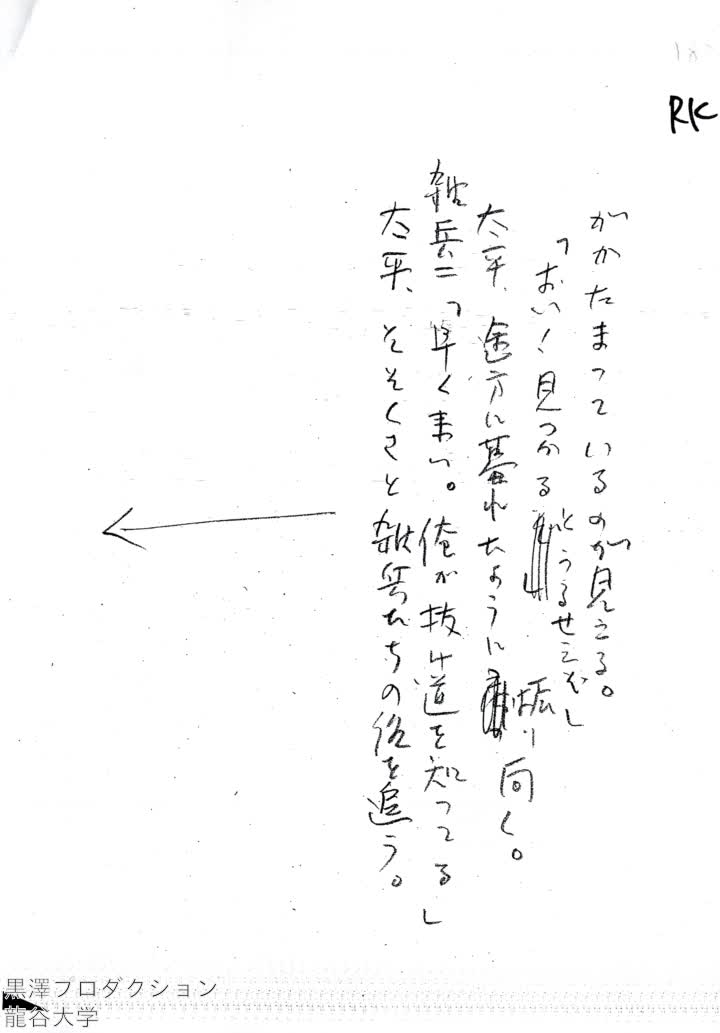 RK
がかたまっているのが見える。
「おい! 見つかるとうるせえぞ」
太平、途方に暮れたように振り向く。
雑兵二「早く来い。俺が抜け道を知ってる」
太平、そそくさと雑兵たちの後を追う。
黒澤プロダクション
龍谷大学